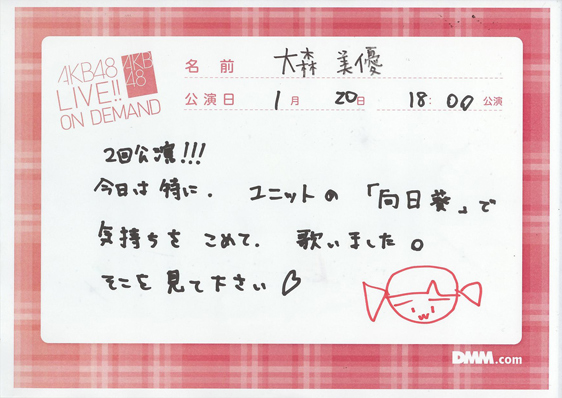 AKB48
LIVE!!
ON DEMAND
AKB
48
名前 大森美優
公演日 1月 20日 18:00 公演
2回公演!!!
今日は特に. ユニットの「向日葵」で
気持ちをこめて. 歌いました。
そこを見て下さい♡
DMM.com